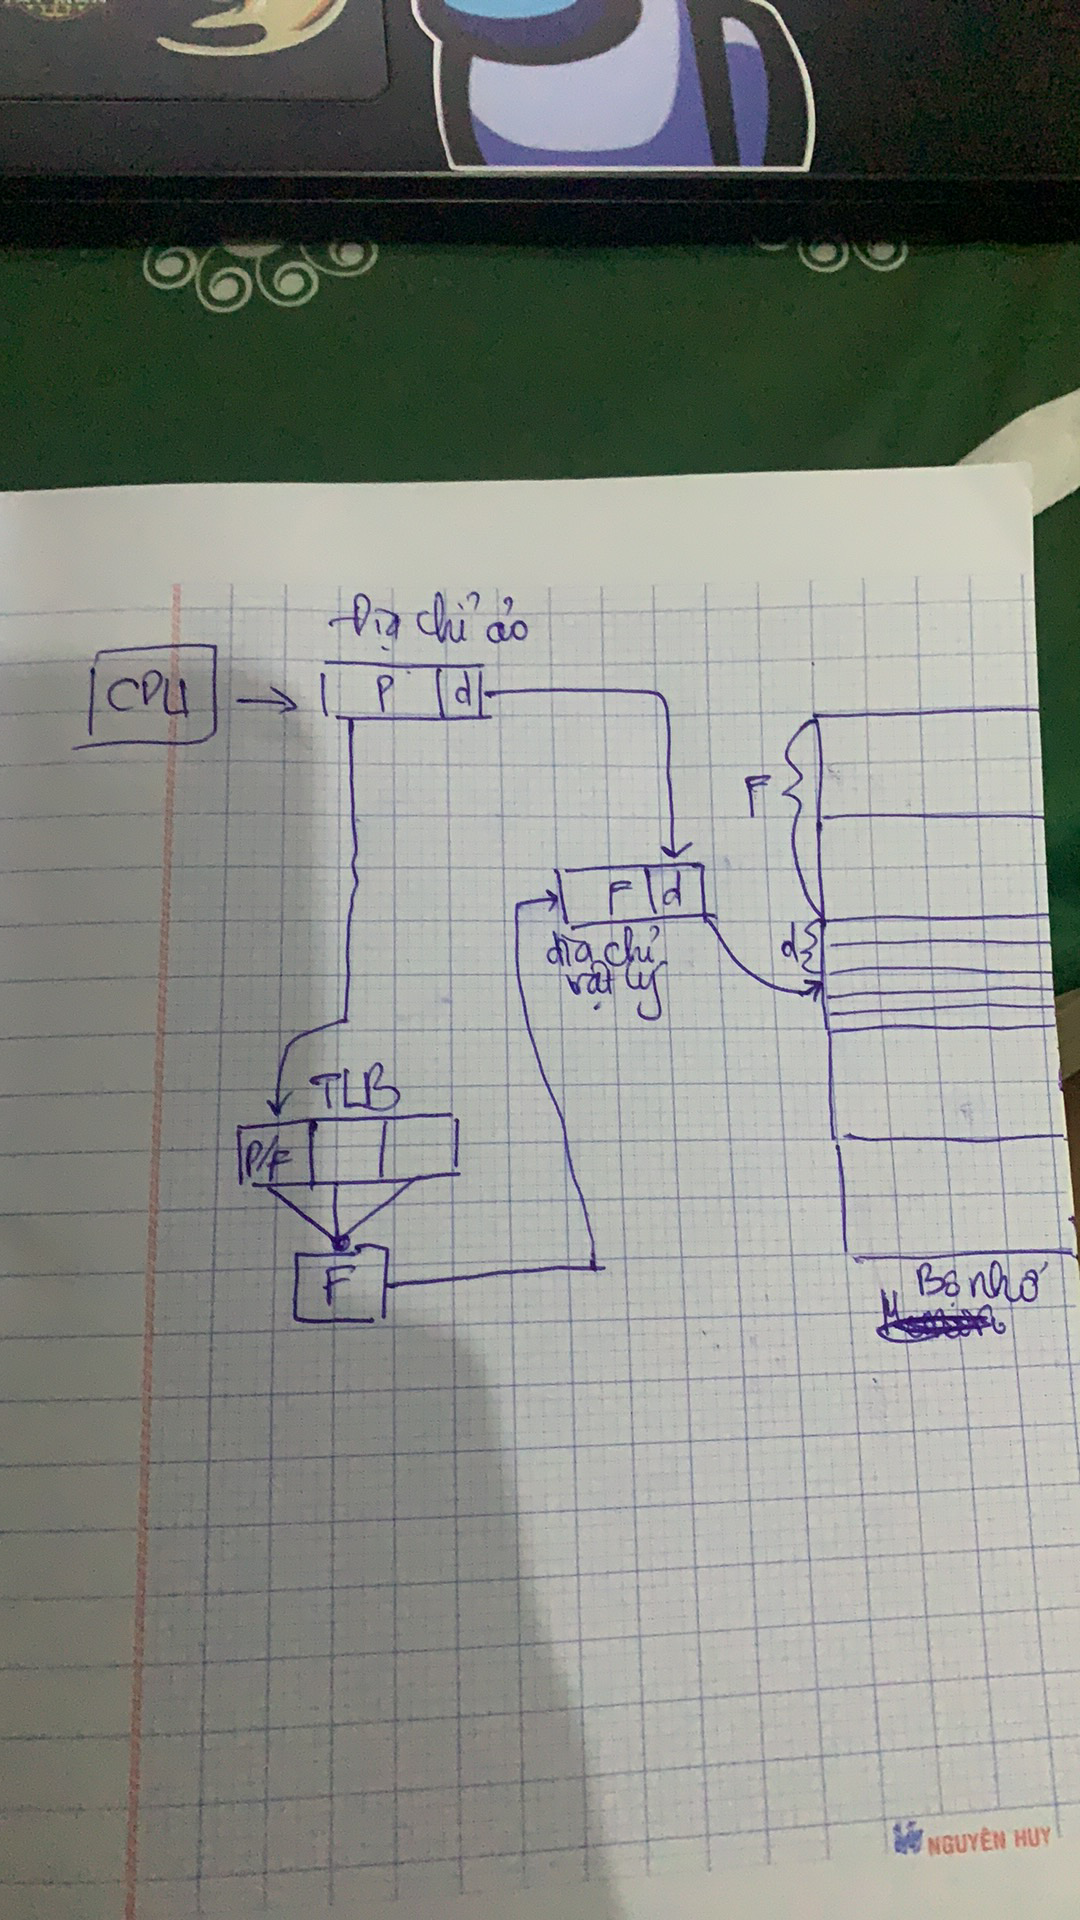 Địa chỉ ảo
CPU
P
d
F
F
d
địa chỉ
vật lý
d
TLB
P/F
F
Bộ nhớ
NGUYÊN HUY